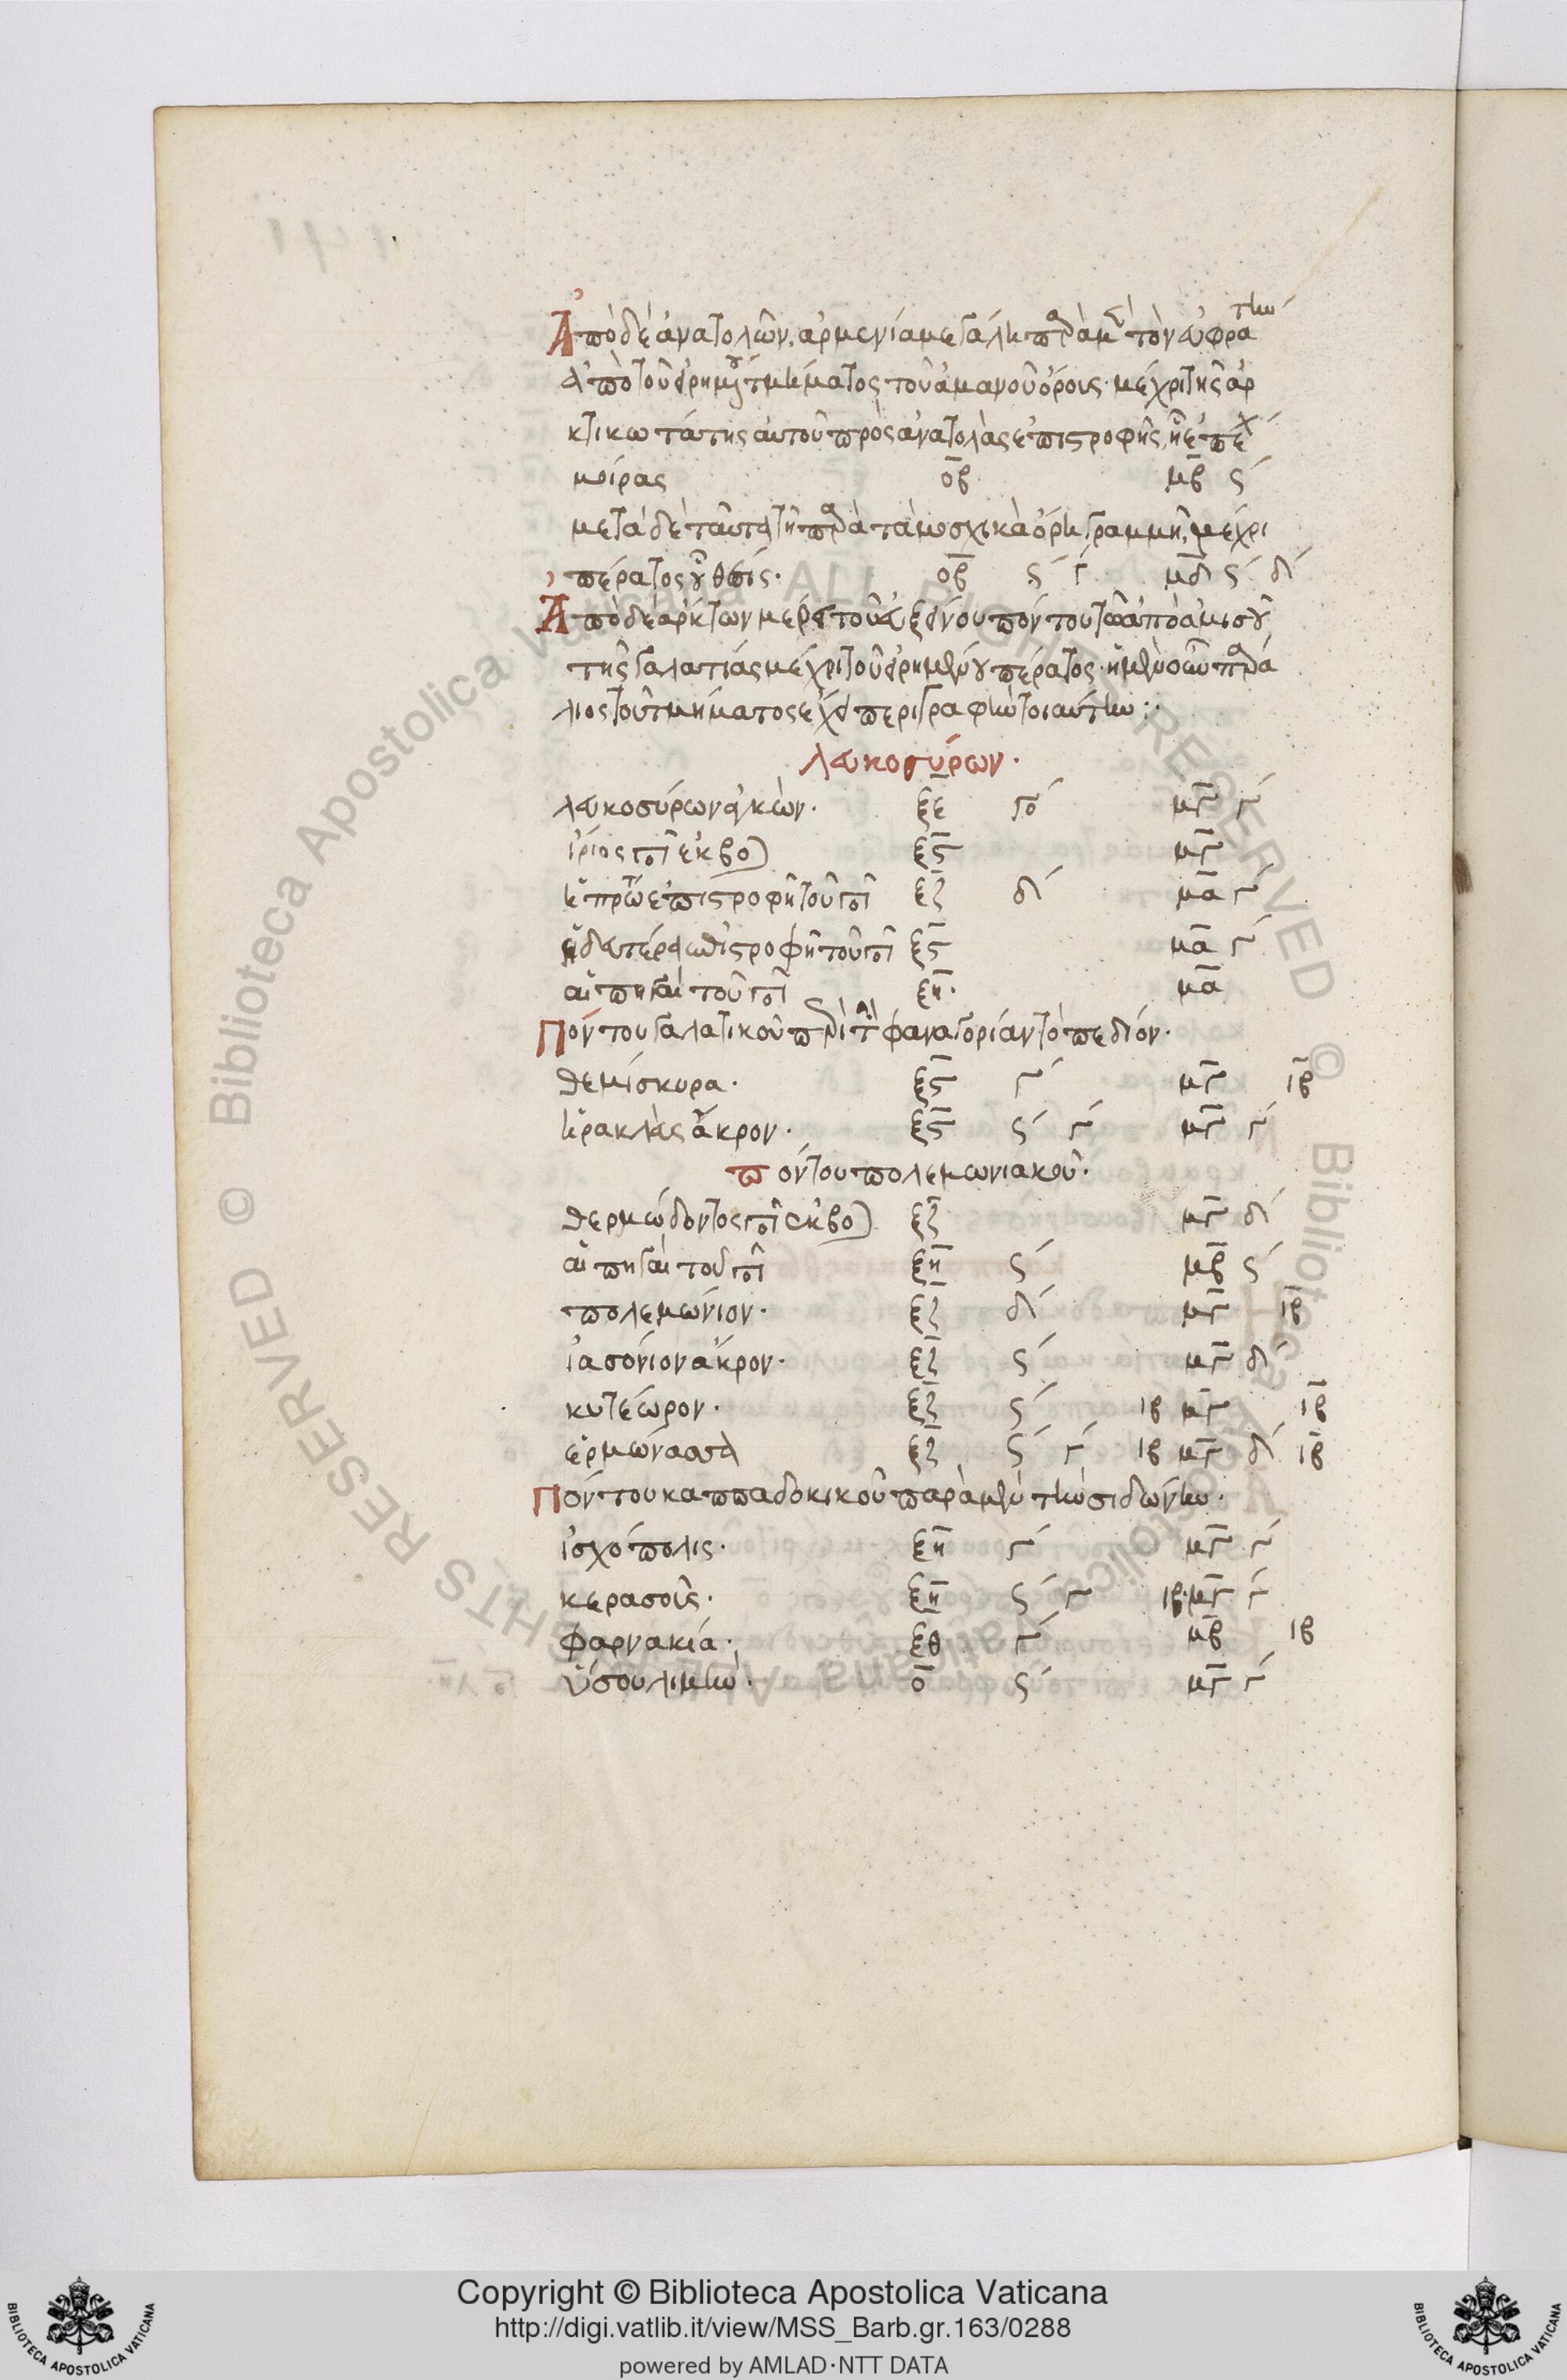 Ἀπὸ δὲ ἀνατολῶν, ἀρμενία μεγάλη παρὰ μὲν τὸν εὐφράτην
ἀπὸ τοῦ εἰρημένου τμήματος τοῦ ἀμανοῦ ὄρους· μέχρι τῆς ἀρ
κτικωτάτης αὐτοῦ πρὸς ἀνατολὰς ἐπιστροφῆς, ἣ ἐπέχ
μοίρας ο̅β̅ μ̅β̅ ϛʹ
μετὰ δὲ ταῦτα τῇ παρὰ τὰ μοσχικὰ ὄρη γραμμῇ, μέχρι
πέρατος οὗ θέσις· ο̅β̅ ϛʹ γʹ μ̅δ̅ ϛʹ δʹ
Ἀπὸ δὲ ἄρκτων μέρει τοῦ εὐξείνου πόντου τῶ ἀπὸ ἀμισοῦ
τῆς γαλατίας μέχρι τοῦ εἰρημένου πέρατος· ἡ μὲν οὖν παρά
λιος τοῦ τμήματος ἔχει περιγραφὴν τοιαύτην :·
λευκοσύρων·
λευκοσύρων ἀγκὼν· ξ̅ε̅ γοʹ μ̅γ̅ γʹ
ἴριος ποτ ἐκβο) ξ̅ϛ̅ μ̅γ̅
ἡ πρώτ ἐπιστροφὴ τοῦ ποτ ξ̅ζ̅ δʹ μ̅α̅ γʹ
ἡ δευτέρα ἐπιστροφὴ τοῦ ποτ ξ̅ϛ̅ μ̅α̅ γʹ
αἱ πηγαὶ τοῦ ποτ ξ̅η̅· μ̅α̅
Πόντου γαλατικοῦ περὶ τ φαναγορίαν τὸ πεδιόν·
θεμίσκυρα· ξ̅ϛ̅ γʹ μ̅γ̅ ι̅β̅
ἡρακλέες ἄκρον· ξ̅ϛ̅ ϛʹ γʹ μ̅γ̅ γʹ
πόντου πολεμωνιακοῦ·
θερμώδοντος ποτ ἐκβο) ξ̅ζ̅ μ̅γ̅ δʹ
αἱ πηγαὶ τοῦ ποτ ξ̅η̅ ϛʹ μ̅β̅ ϛʹ
πολεμώνιον· ξ̅ζ̅ δʹ μ̅γ̅ ι̅β̅
ἰασόνιον ἄκρον· ξ̅ζ̅ ϛʹ μ̅γ̅ δʹ
κυτέωρον· ξ̅ζ̅ ϛʹ ιβ μ̅γ̅ ι̅β̅
ἑρμώνασσα ξ̅ζ̅ ϛʹ γʹ ιβ μ̅γ̅ δʹ ι̅β̅
Πόντου καππαδοκικοῦ παρὰ μὲν τὴν σιδώνην·
ἰσχόπολις· ξ̅η̅ γʹ μ̅γ̅ γʹ
κερασοῦς· ξ̅η̅ ϛʹ γʹ ιβ· μ̅γ̅ γʹ
φαρνακία· ξ̅θ̅ γʹ μ̅β̅ ιβ
ὕσου λιμὴν· ο̅ ϛʹ μ̅γ̅ γʹ
Copyright © Biblioteca Apostolica Vaticana
http://digi.vatlib.it/view/MSS_Barb.gr.163/0288
powered by AMLAD·NTT DATA